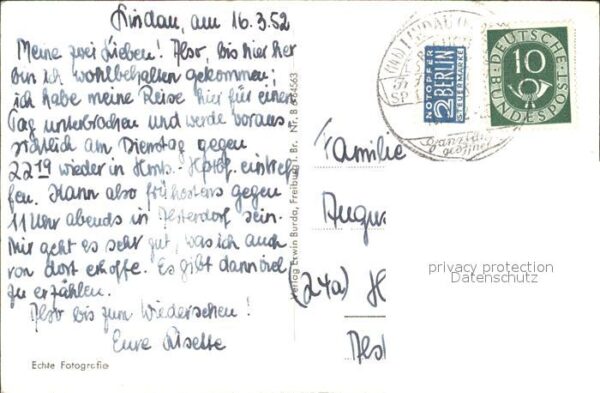 Lindau, am 16.3.52
Meine zwei Lieben! Also, bis hier her
bin ich wohlbehalten gekommen;
ich habe meine Reise hier für einen
Tag unterbrochen und werde voraus
sichtlich am Dienstag gegen
22 19 wieder in Hmb.-Hptbf. eintref
fen. Kann also frühestens gegen
11 Uhr abends in Alsterdorf sein.
Mir geht es sehr gut, was ich auch
von dort erhoffe. Es gibt dann viel
zu erzählen.
Also bis zum Wiedersehen!
Eure Lisette
Echte Fotografie
Verlag Erwin Burda, Freiburg i. Br. Nr. B 8
LINDAU
NOTOPFER
2 BERLIN
STEUERMARKE
10
DEUTSCHE
BUNDESPOST
Familie
Augus
(24a) H
Als
privacy protection
Datenschutz